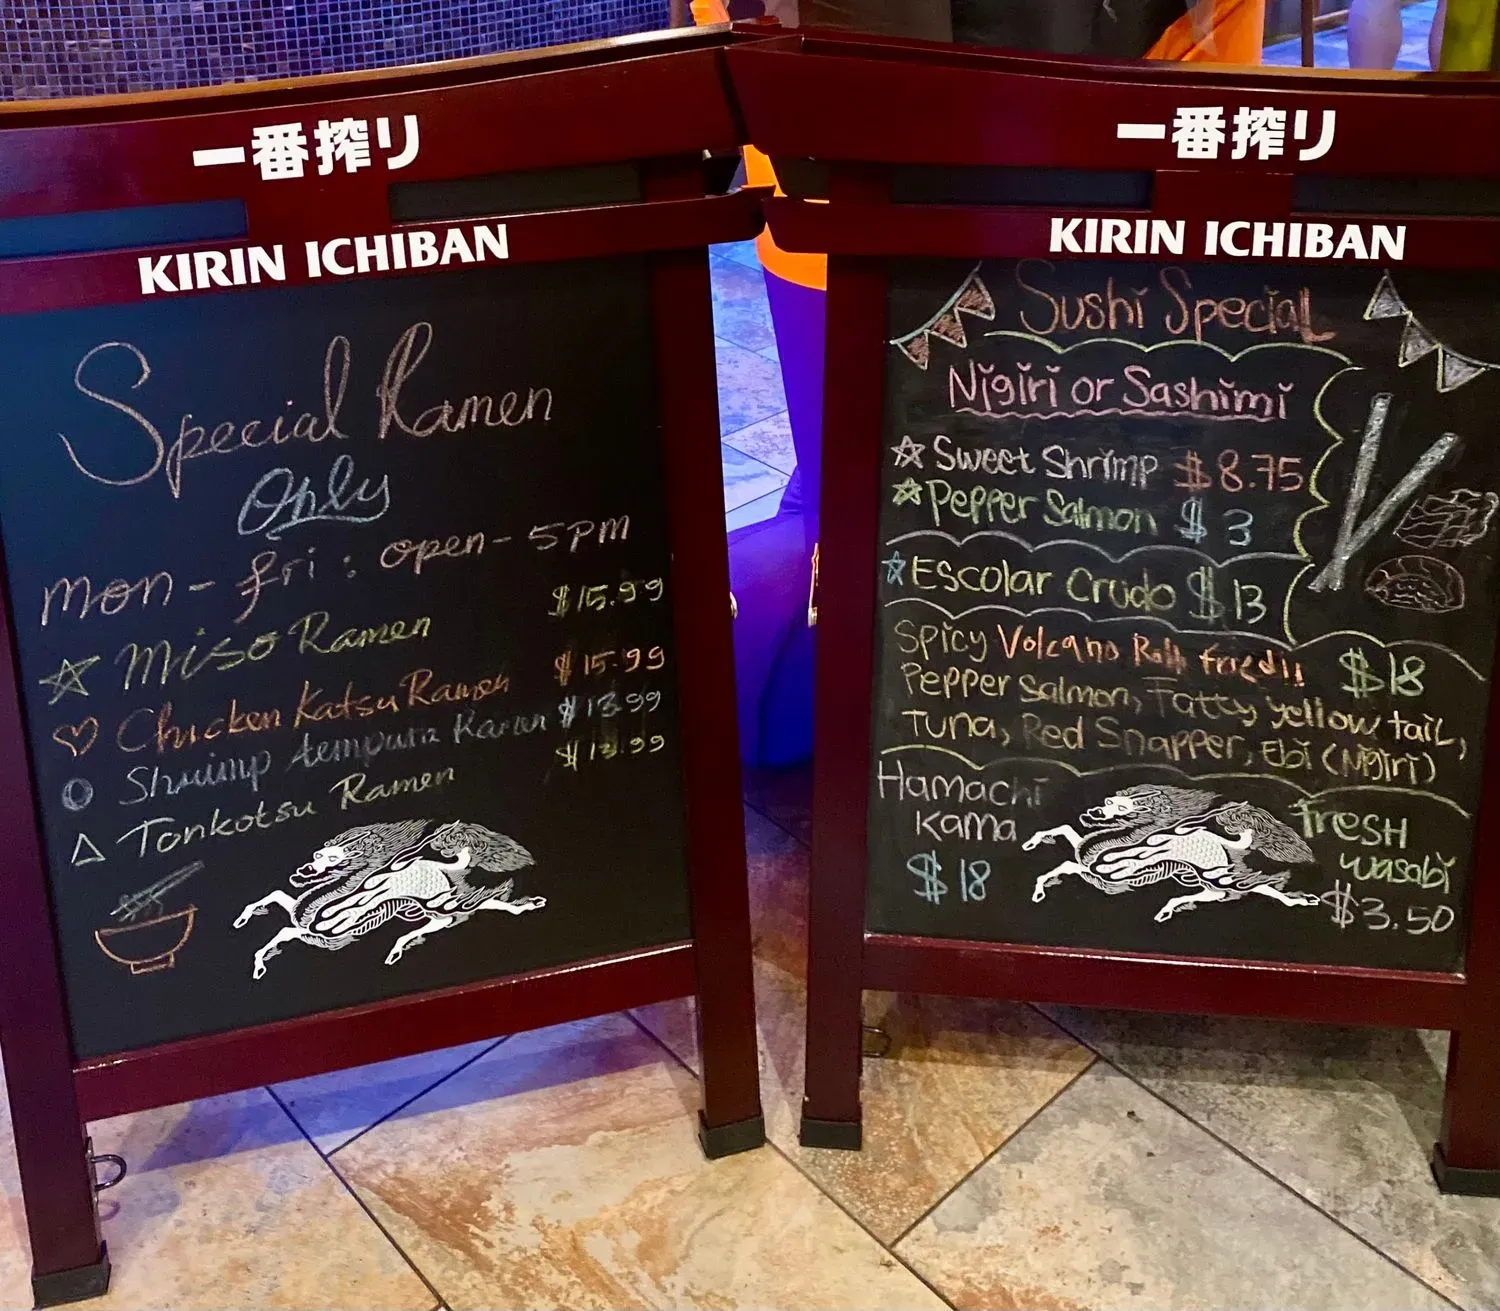 一番搾り
KIRIN ICHIBAN
Special Ramen
Only
Mon - Fri : open - 5PM
Miso Ramen $15.99
Chicken Katsu Ramen $15.99
Shrimp tempura Ramen $13.99
Tonkotsu Ramen $13.99
一番搾り
KIRIN ICHIBAN
Sushi Special
Nigiri or Sashimi
Sweet Shrimp $8.75
Pepper Salmon $3
Escolar Crudo $13
Spicy Volcano Roll fried!! $18
Pepper Salmon, Fatty yellow tail,
Tuna, Red Snapper, Ebi (Nigiri)
Hamachi
Kama
$18
Fresh
Wasabi
$3.50